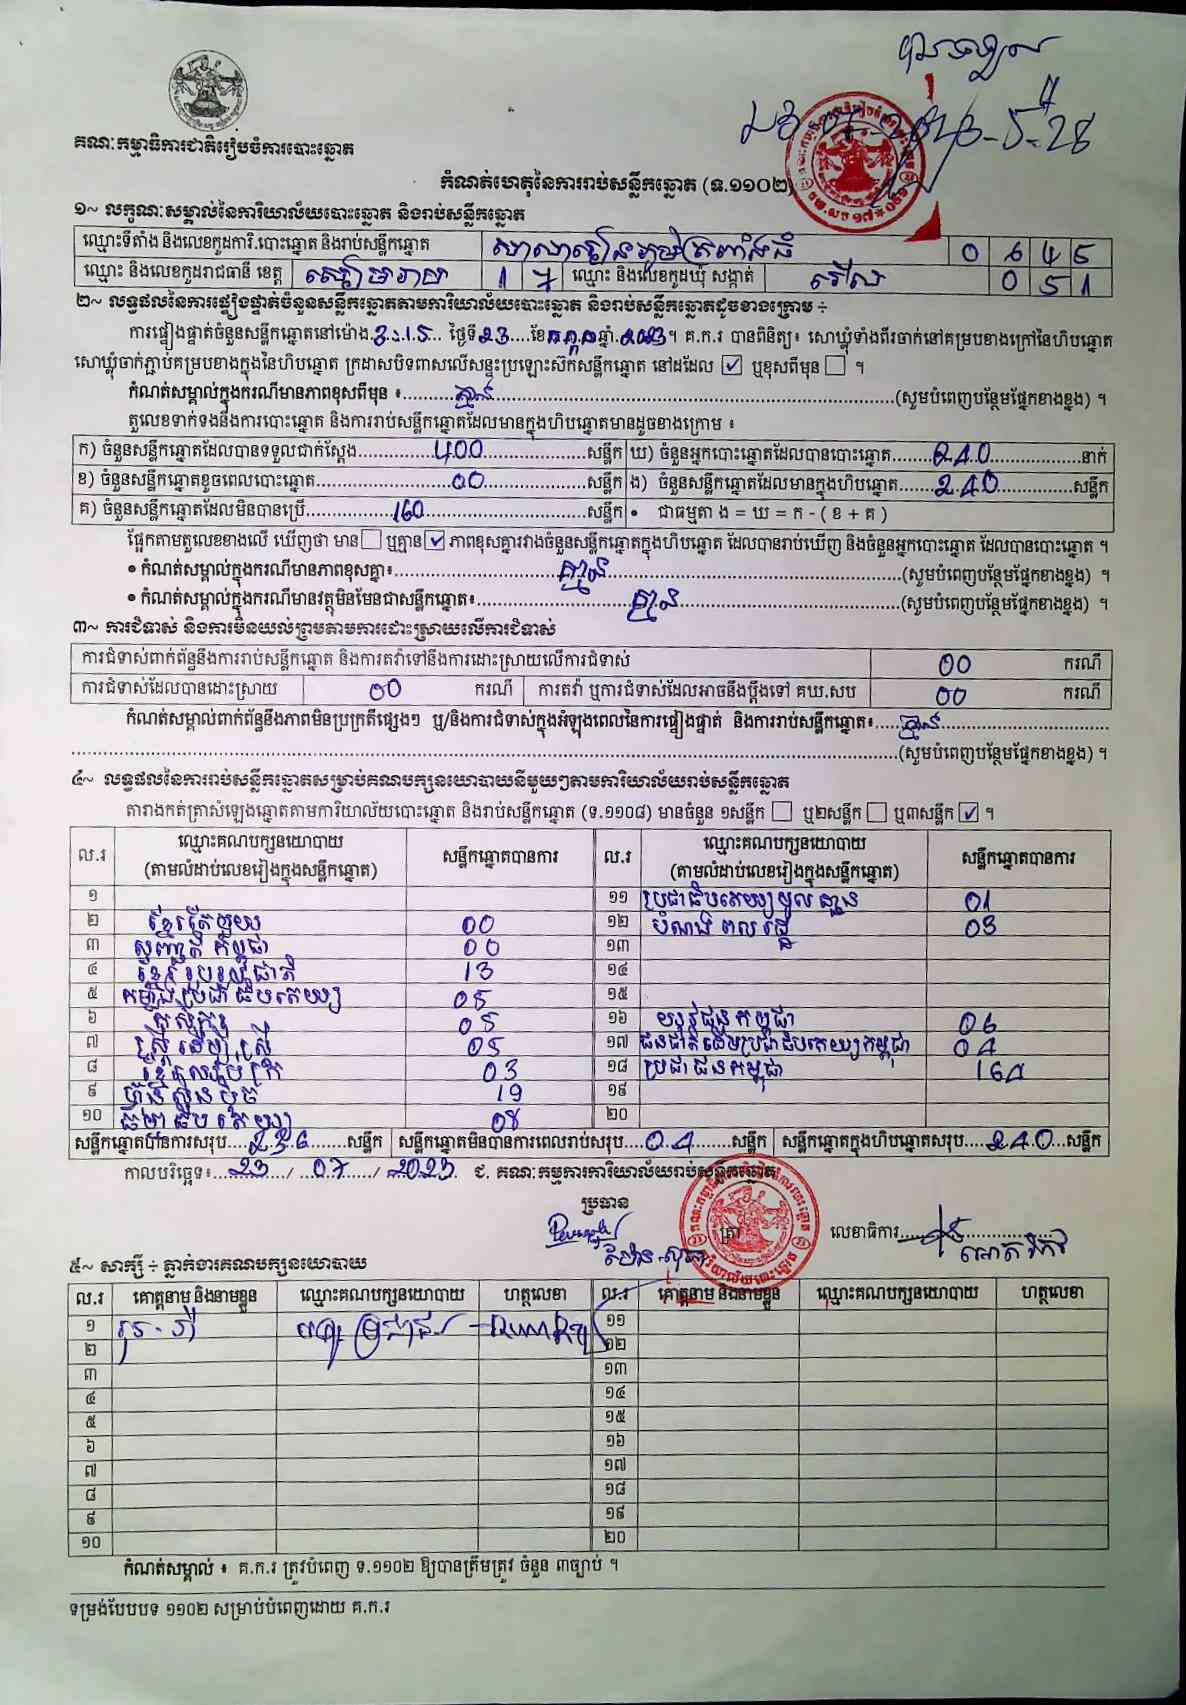 គណៈកម្មាធិការជាតិរៀបចំការបោះឆ្នោត
កំណត់ហេតុនៃការរាប់សន្លឹកឆ្នោត (ទ.១១០២)
១~ លក្ខណៈសម្គាល់នៃការិយាល័យបោះឆ្នោត និងរាប់សន្លឹកឆ្នោត
ឈ្មោះទីតាំង និងលេខកូដការិ.បោះឆ្នោត និងរាប់សន្លឹកឆ្នោត សាលារៀនភូមិត្រពាំងធំ 0 6 4 5
ឈ្មោះ និងលេខកូដរាជធានី ខេត្ត សៀមរាប 1 7 ឈ្មោះ និងលេខកូដឃុំ សង្កាត់ រើល 0 5 1
២~ លទ្ធផលនៃការផ្ទៀងផ្ទាត់ចំនួនសន្លឹកឆ្នោតតាមការិយាល័យបោះឆ្នោត និងរាប់សន្លឹកឆ្នោតដូចខាងក្រោម ÷
ការផ្ទៀងផ្ទាត់ចំនួនសន្លឹកឆ្នោតនៅម៉ោង 3:15 ថ្ងៃទី 23 ខែ កក្កដា ឆ្នាំ 2023។ គ.ក.រ បានពិនិត្យ៖ សោឃ្លុំទាំងពីរចាក់នៅគម្របខាងក្រៅនៃហិបឆ្នោត
សោឃ្លុំចាក់ភ្ជាប់គម្របខាងក្នុងនៃហិបឆ្នោត ក្រដាសបិទពាសលើសន្ទះប្រឡោះស៊កសន្លឹកឆ្នោត នៅដដែល ☑ ឬខុសពីមុន ☐ ។
កំណត់សម្គាល់ក្នុងករណីមានភាពខុសពីមុន ៖ គ្មាន (សូមបំពេញបន្ថែមផ្នែកខាងខ្នង) ។
តួលេខទាក់ទងនឹងការបោះឆ្នោត និងការរាប់សន្លឹកឆ្នោតដែលមានក្នុងហិបឆ្នោតមានដូចខាងក្រោម ៖
ក) ចំនួនសន្លឹកឆ្នោតដែលបានទទួលជាក់ស្តែង 400 សន្លឹក ឃ) ចំនួនអ្នកបោះឆ្នោតដែលបានបោះឆ្នោត 240 នាក់
ខ) ចំនួនសន្លឹកឆ្នោតខូចពេលបោះឆ្នោត 00 សន្លឹក ង) ចំនួនសន្លឹកឆ្នោតដែលមានក្នុងហិបឆ្នោត 240 សន្លឹក
គ) ចំនួនសន្លឹកឆ្នោតដែលមិនបានប្រើ 160 សន្លឹក • ជាធម្មតា ង = ឃ = ក - ( ខ + គ )
ផ្អែកតាមតួលេខខាងលើ ឃើញថា មាន ☐ ឬគ្មាន ☑ ភាពខុសគ្នារវាងចំនួនសន្លឹកឆ្នោតក្នុងហិបឆ្នោត ដែលបានរាប់ឃើញ និងចំនួនអ្នកបោះឆ្នោត ដែលបានបោះឆ្នោត ។
• កំណត់សម្គាល់ក្នុងករណីមានភាពខុសគ្នា៖ គ្មាន (សូមបំពេញបន្ថែមផ្នែកខាងខ្នង) ។
• កំណត់សម្គាល់ក្នុងករណីមានវត្ថុមិនមែនជាសន្លឹកឆ្នោត៖ គ្មាន (សូមបំពេញបន្ថែមផ្នែកខាងខ្នង) ។
៣~ ការជំទាស់ និងការមិនយល់ព្រមតាមការដោះស្រាយលើការជំទាស់
ការជំទាស់ពាក់ព័ន្ធនឹងការរាប់សន្លឹកឆ្នោត និងការតវ៉ាទៅនឹងការដោះស្រាយលើការជំទាស់ 00 ករណី
ការជំទាស់ដែលបានដោះស្រាយ 00 ករណី ការតវ៉ា ឬការជំទាស់ដែលអាចនឹងប្តឹងទៅ គឃ.សប 00 ករណី
កំណត់សម្គាល់ពាក់ព័ន្ធនឹងភាពមិនប្រក្រតីផ្សេងៗ ឬ/និងការជំទាស់ក្នុងអំឡុងពេលនៃការផ្ទៀងផ្ទាត់ និងការរាប់សន្លឹកឆ្នោត៖ គ្មាន
(សូមបំពេញបន្ថែមផ្នែកខាងខ្នង) ។
៤~ លទ្ធផលនៃការរាប់សន្លឹកឆ្នោតសម្រាប់គណបក្សនយោបាយនីមួយៗតាមការិយាល័យរាប់សន្លឹកឆ្នោត
តារាងកត់ត្រាសំឡេងឆ្នោតតាមការិយាល័យបោះឆ្នោត និងរាប់សន្លឹកឆ្នោត (ទ.១១០៨) មានចំនួន ១សន្លឹក ☐ ឬ២សន្លឹក ☐ ឬ៣សន្លឹក ☑ ។
ល.រ ឈ្មោះគណបក្សនយោបាយ (តាមលំដាប់លេខរៀងក្នុងសន្លឹកឆ្នោត) សន្លឹកឆ្នោតបានការ ល.រ ឈ្មោះគណបក្សនយោបាយ (តាមលំដាប់លេខរៀងក្នុងសន្លឹកឆ្នោត) សន្លឹកឆ្នោតបានការ
១ ១១ ប្រជាធិបតេយ្យមូលដ្ឋាន 01
២ ខ្មែរតែមួយ 00 ១២ បំណងពលរដ្ឋ 03
៣ សញ្ជាតិកម្ពុជា 00 ១៣
៤ ខ្មែររួបរួមជាតិ 13 ១៤
៥ កម្លាំងប្រជាធិបតេយ្យ 05 ១៥
៦ កសិករ 05 ១៦ យុវជនកម្ពុជា 06
៧ ស្ត្រីដើម្បីស្ត្រី 05 ១៧ ជនជាតិដើមប្រជាធិបតេយ្យកម្ពុជា 04
៨ ខ្មែរឈប់ក្រ 03 ១៨ ប្រជាជនកម្ពុជា 164
៩ ហ្វ៊ុនស៊ិនប៉ិច 19 ១៩
១០ ធម្មាធិបតេយ្យ 08 ២០
សន្លឹកឆ្នោតបានការសរុប 236 សន្លឹក សន្លឹកឆ្នោតមិនបានការពេលរាប់សរុប 04 សន្លឹក សន្លឹកឆ្នោតក្នុងហិបឆ្នោតសរុប 240 សន្លឹក
កាលបរិច្ឆេទ៖ 23 / 07 / 2023 ជ. គណៈកម្មការការិយាល័យរាប់សន្លឹកឆ្នោត
ប្រធាន
ត្រា លេខាធិការ
៥~ សាក្សី ÷ ភ្នាក់ងារគណបក្សនយោបាយ
ល.រ គោត្តនាម និងនាមខ្លួន ឈ្មោះគណបក្សនយោបាយ ហត្ថលេខា ល.រ គោត្តនាម និងនាមខ្លួន ឈ្មោះគណបក្សនយោបាយ ហត្ថលេខា
១ ១១
២ ១២
៣ ១៣
៤ ១៤
៥ ១៥
៦ ១៦
៧ ១៧
៨ ១៨
៩ ១៩
១០ ២០
កំណត់សម្គាល់ ៖ គ.ក.រ ត្រូវបំពេញ ទ.១១០២ ឱ្យបានត្រឹមត្រូវ ចំនួន ៣ច្បាប់ ។
ទម្រង់បែបបទ ១១០២ សម្រាប់បំពេញដោយ គ.ក.រ